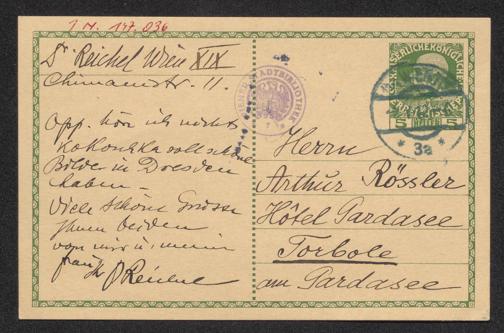 I.N. 147.036
Dr Reichel Wien XIX
Chimanistr. 11.
Opp. hör ich nichts
Kokoschka soll schöne
Bilder in Dresden
haben –
Viele schöne Grüsse
Ihnen beiden
von mir u. meiner
Frau Ihr O Reichel
STADTBIBLIOTHEK
KAISERLICHEKÖNIGLICHE
5
3a
Herrn
Arthur Rössler
Hôtel Gardasee
Torbole
am Gardasee